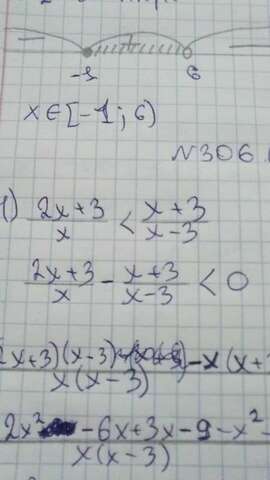 -1 6
x∈[-1; 6)
N306
1) (2x+3)/x < (x+3)/(x-3)
(2x+3)/x - (x+3)/(x-3) < 0
2x+3)(x-3) -x(x+
x(x-3)
2x² -6x+3x-9-x²-
x(x-3)